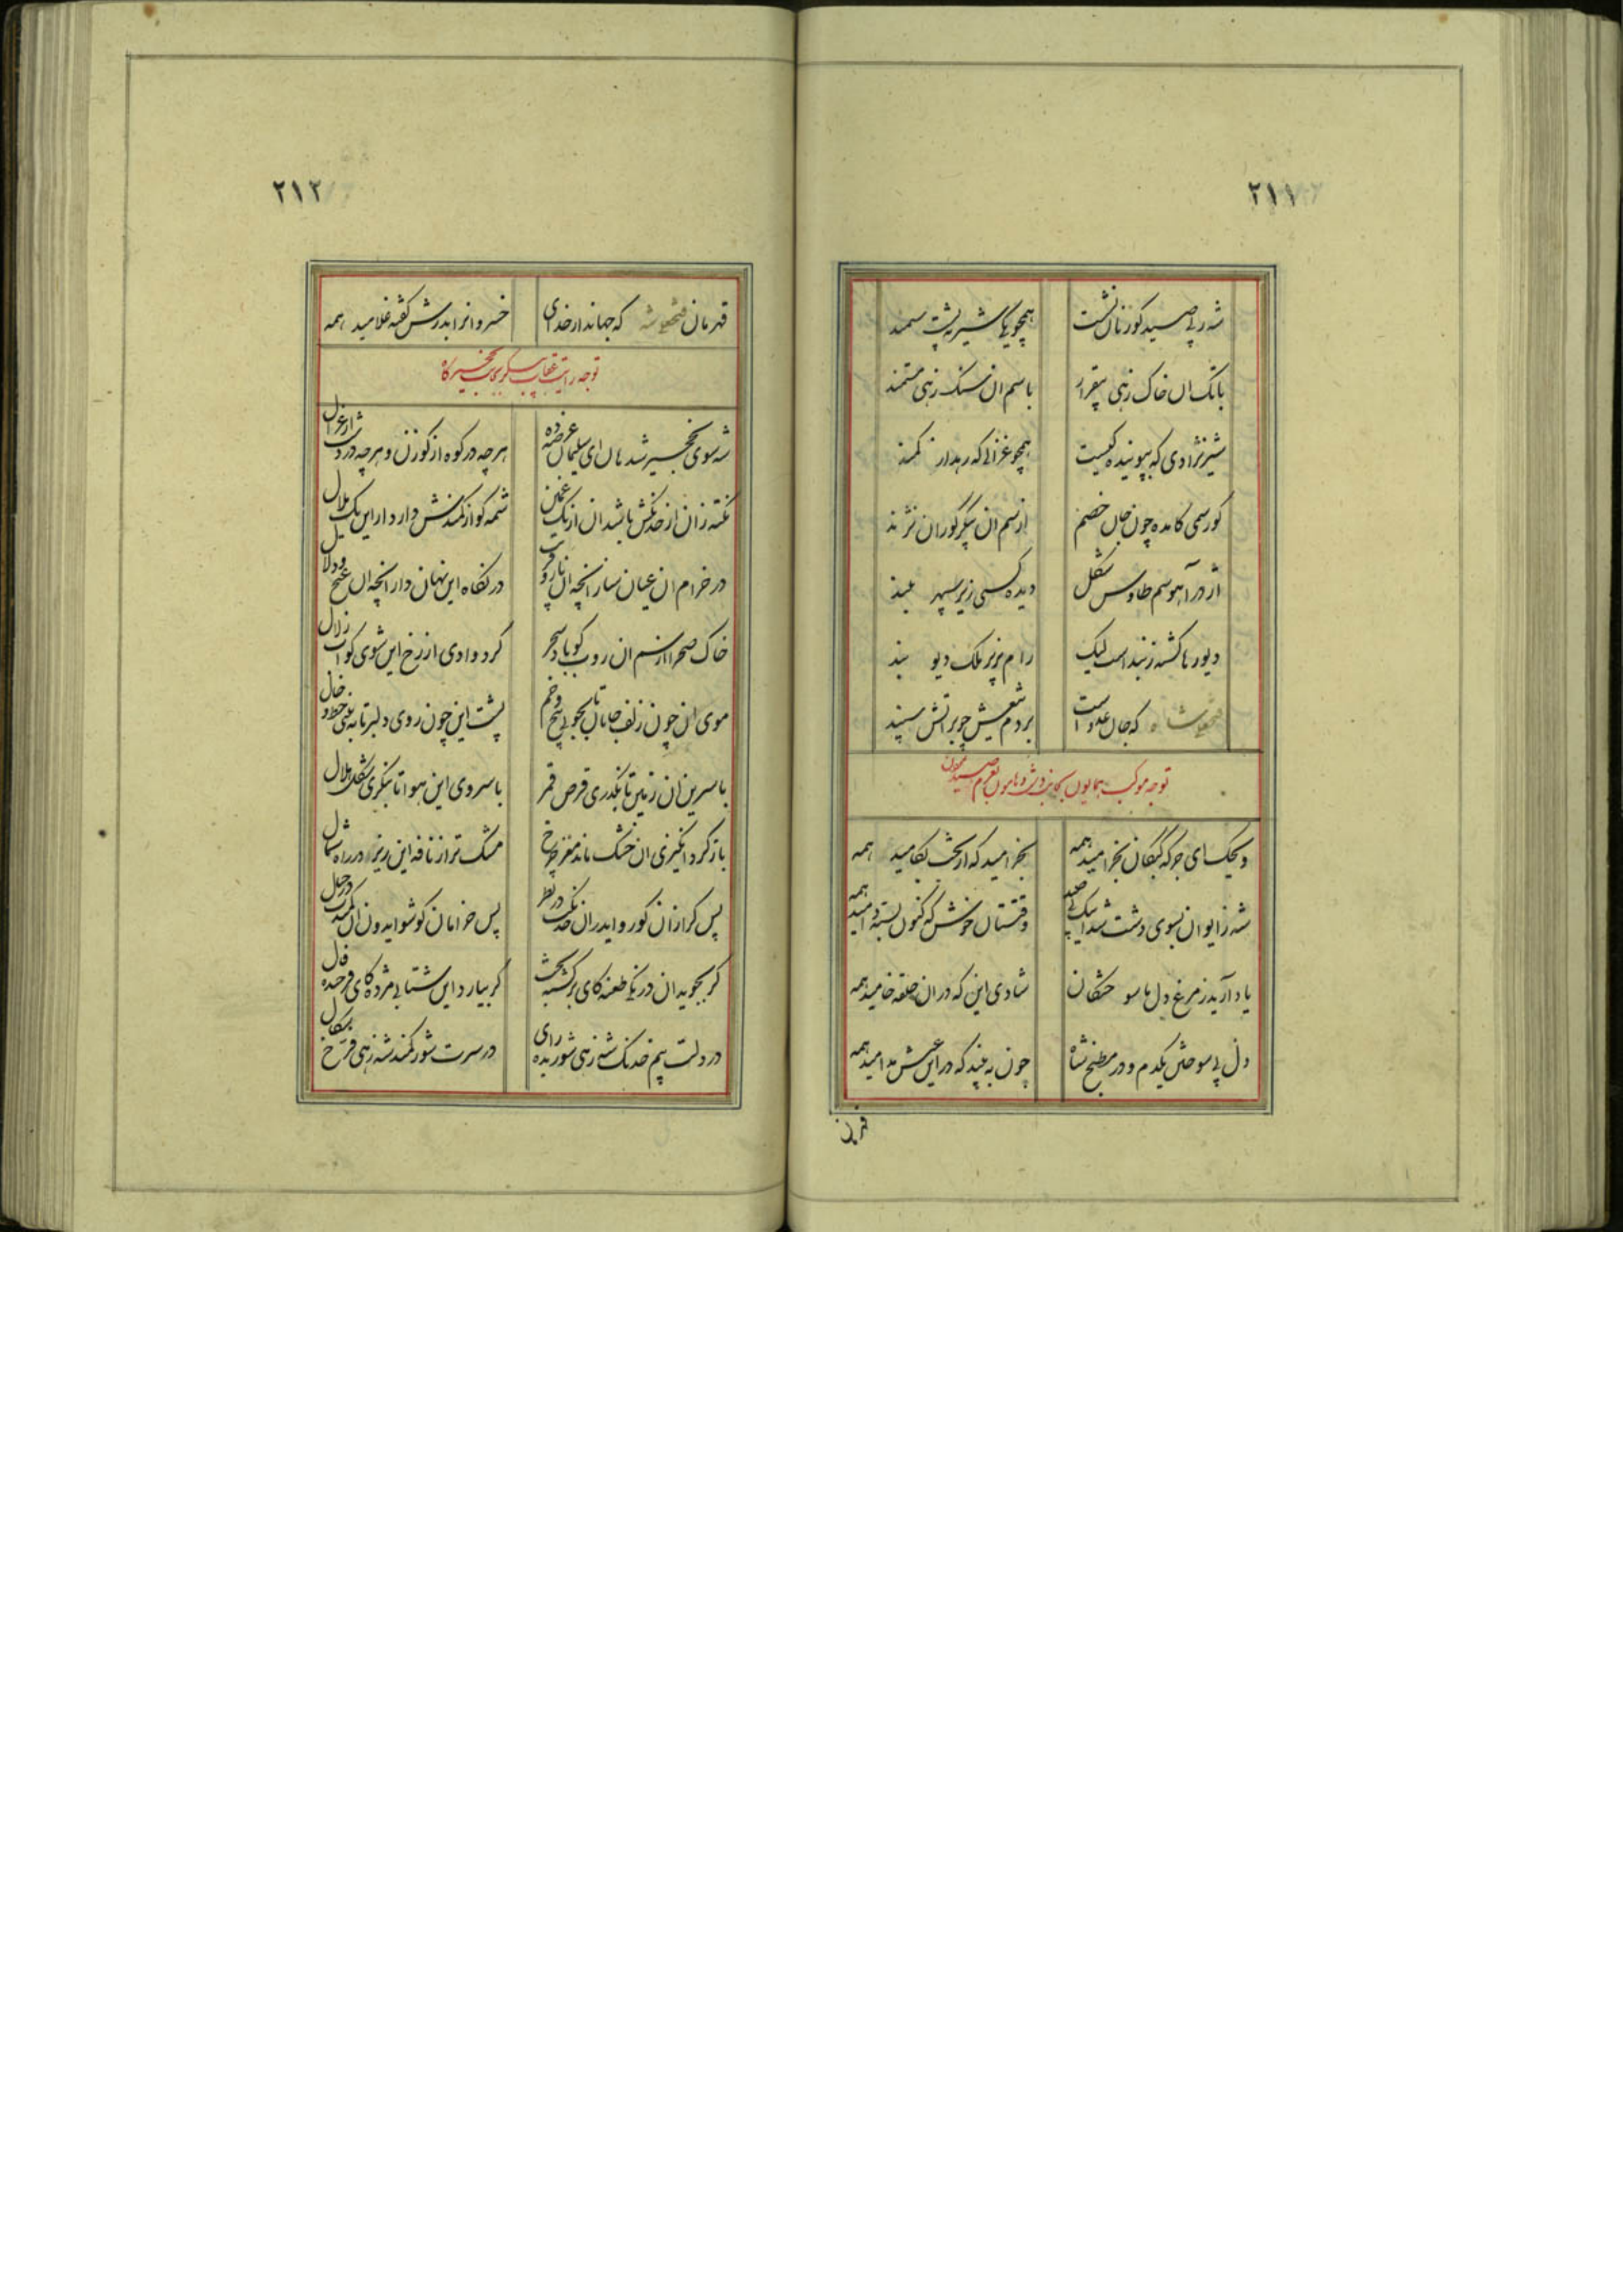 ٢١١
شه ز پی صید گوزنان نشست همچو یکی شیر به پشت سمند
با تک آن خاک زهی بیقرار با سم آن سنگ زهی مستمند
شیرنژادی که بپوینده کیست همچو غزالی که رهد از کمند
گورسمی کامده چون جان خصم از سم آن پیکر گوران نژند
اژدر آهوسم طاوس شکل دیده کسی زیر سپهر بلند
دیو رها گشته ز بند است لیک رام به زیر ملک دیو بند
فتحعلیشاه که جان عدو است بر دم تیغش چو بر آتش سپند
توجه موکب همایون بجانب دشت و هامون بعزم صید
ویحک ای جرگه کبکان بخرامید همه بخرامید که از بخت بکامید همه
شه ز ایوان بسوی دشت شد اینک پی صید وقتتان خوش که کنون بسته دامید همه
یاد آرید ز مرغ دل ما سوختگان شادی این که در آن حلقه خامید همه
دل پی سوختن یکدم و در مطبخ شاه چون به بیند که در این عیش مدامید همه
قهرمان
٢١٢
قهرمان فتحعلی شه که جهاندار خدای خسروانرا بدرش گفته غلامید همه
توجه رایت عقاب پیکر بجانب نخجیرگاه
شه سوی نخجیر شد هان ای سلیمان عرضه ده هرچه در کوه از گوزن و هرچه در دشت از غزال
در خرام آن عیان ساز آنچه آن ناز و در نگاه این نهان دار آنچه آن غنج و دلال
خاک صحرا از سم آن روب گو باد سحر گرد وادی از رخ این شوی گو آب زلال
موی آن چون زلف جانان تا بجوئی پیچ و خم پشت این چون روی دلبر تا به بینی خط و خال
با سرین آن زمین تا بنگری قرص قمر با سروی این هوا تا بنگری شکل هلال
باز گرد انگیزی آن خشک ماند مغز چرخ مشک تر از نافه این ریز در راه شمال
پس گرازان گور و اید در آن خدنگت در نظر پس خرامان گو شو ایدون آن کمندت در خیال
گر بجوید آن درنگی طعنه کای برگشته بخت گر بیارد این شتابی مژده کای فرخنده فال
در دلت بیم خدنگ شه زهی شوریده رای در سرت شور کمند شه زهی فرخ